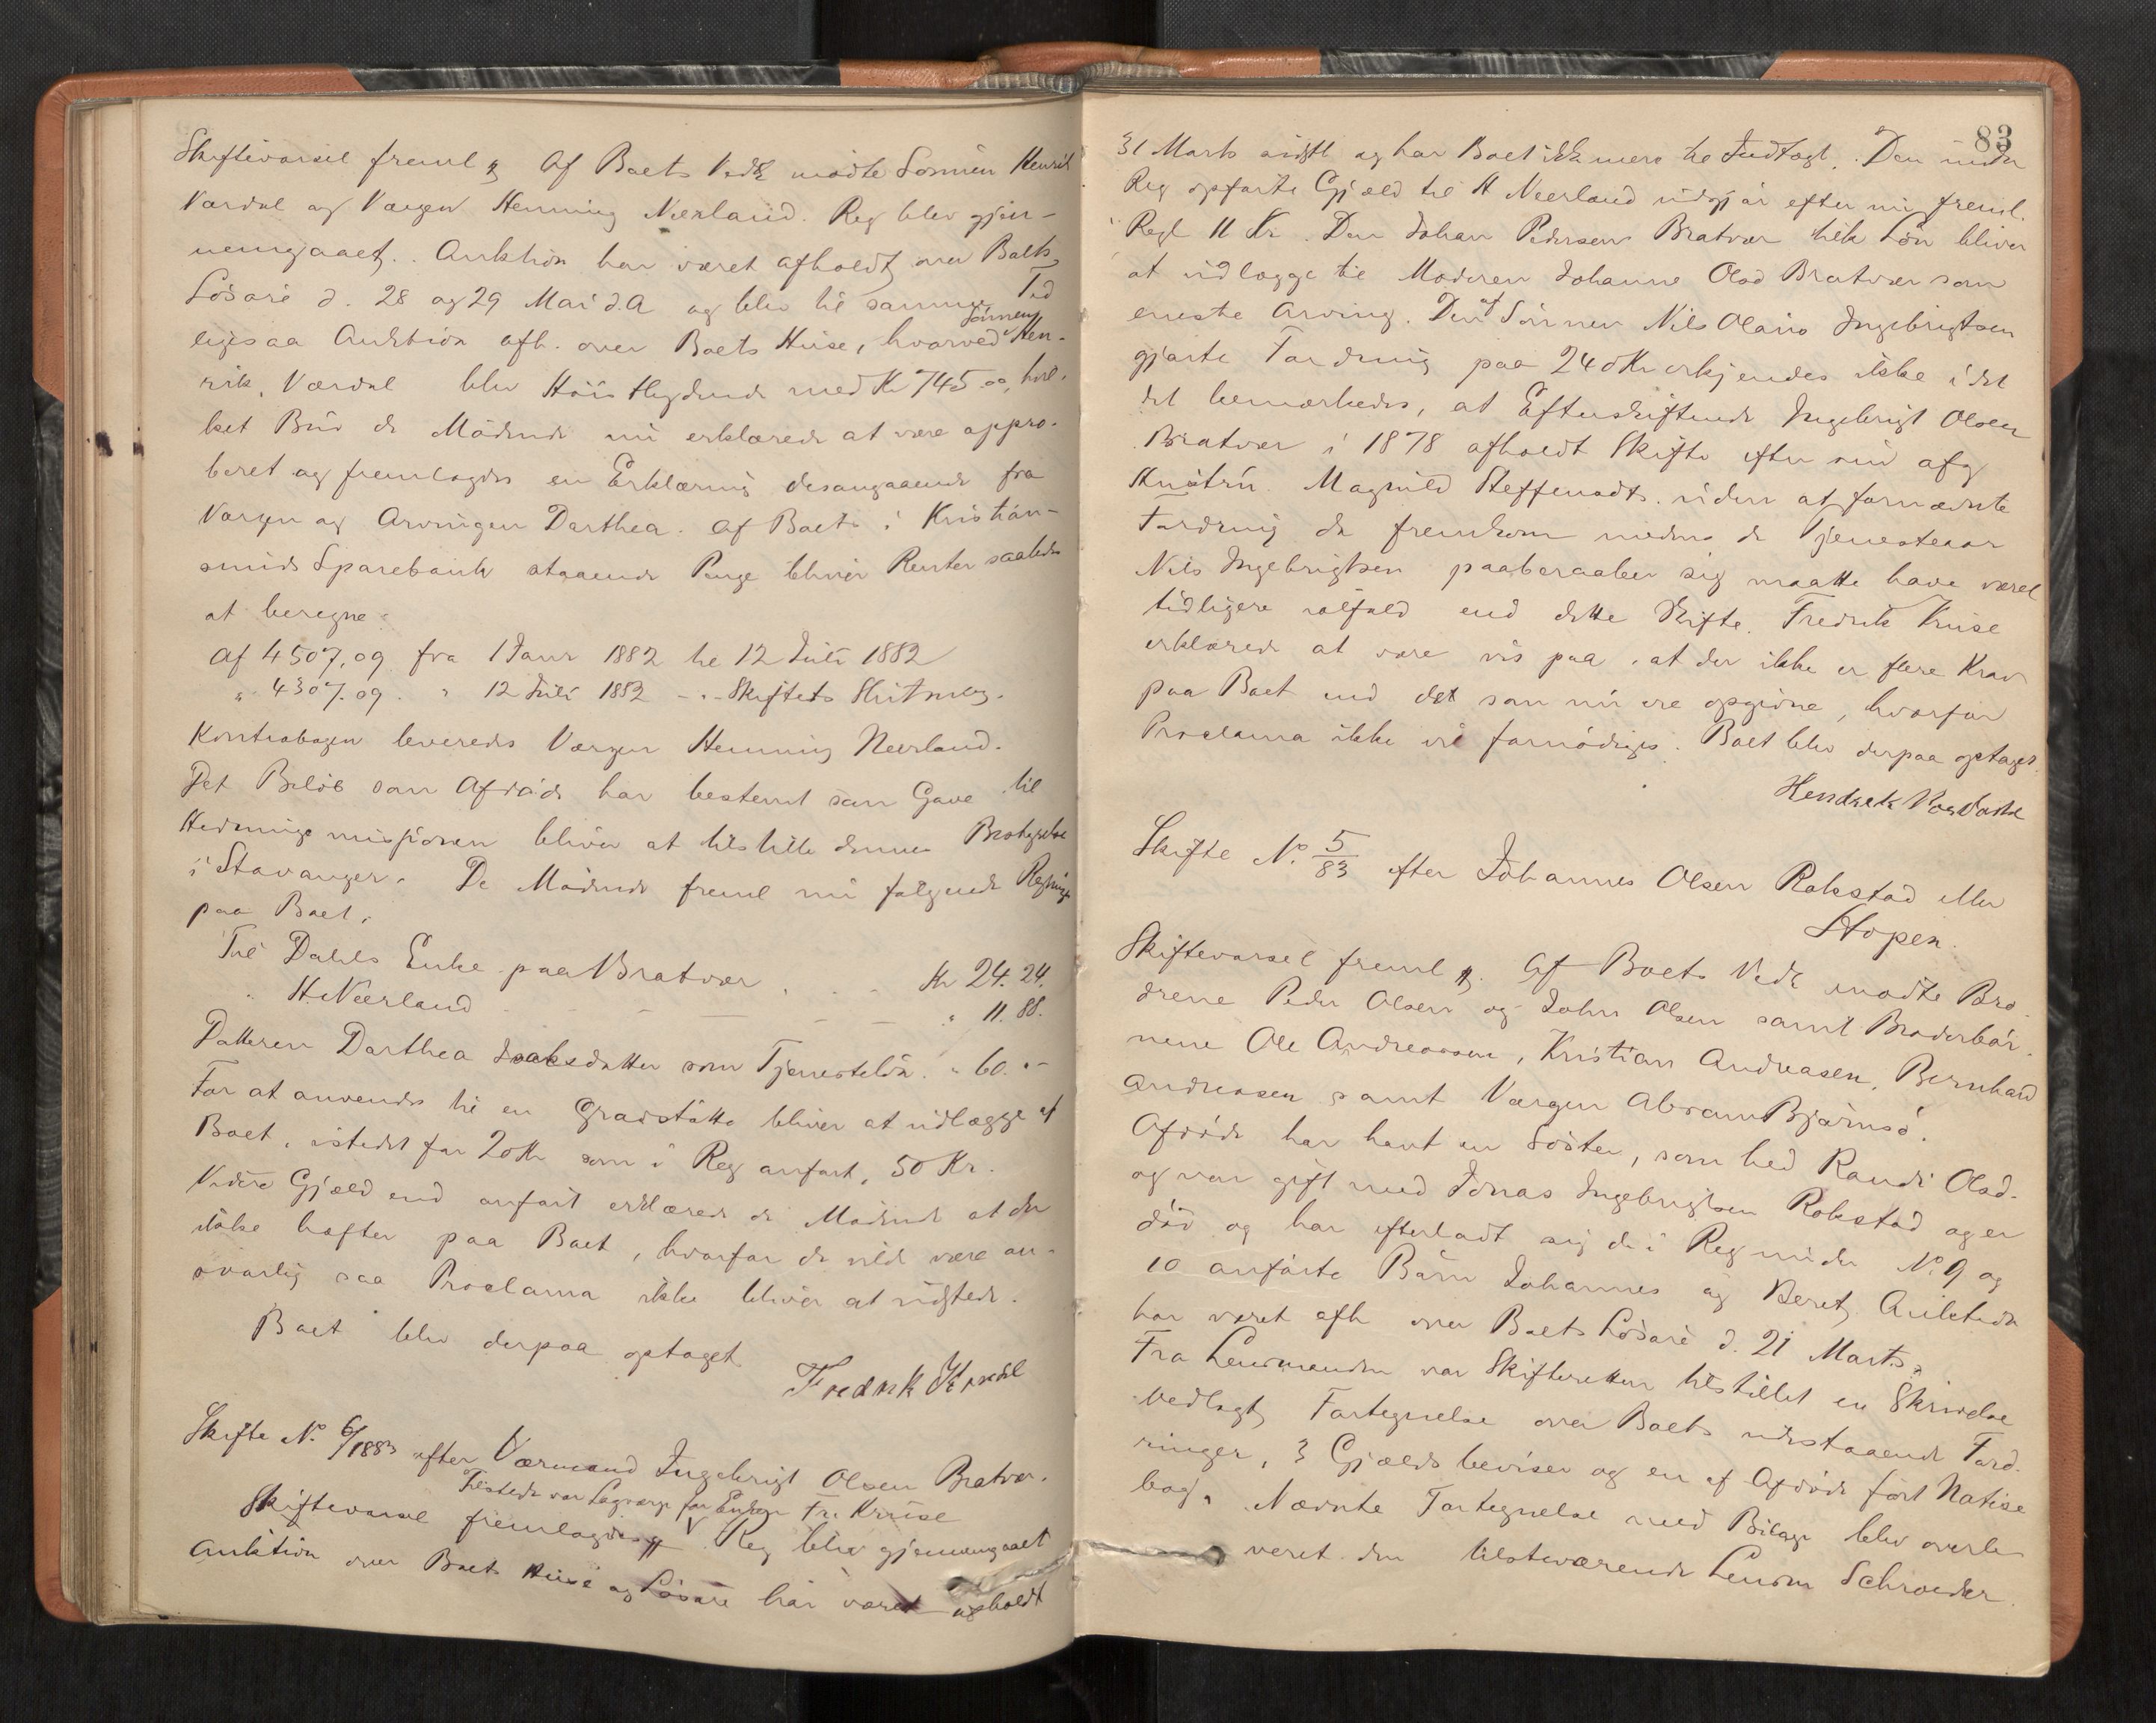 Skiftevarsel freml. Af Boets Vedk mødte Sønnen Henrik
Værdal og Værgen Henning Neerland. Reg blev gjen-
nemgaaet. Auktion har været afholdt over Boets
Løsøre d. 28 og 29 Mai d.A og blev til samme Tid
ligesaa Auktion afh. over Boets Huse, hvorved Sønnen Hen-
rik Værdal blev Høistbydende med Kr 745.00, hvil-
ket Bud de Mødende nu erklærede at være appro-
beret og fremlagdes en Erklæring desangaaende fra
Værgen og Arvingen Dorthea. Af Boets i Kristian-
sunds Sparebank staaende Penge bliver Renter saaledes
at beregne:
Af 4507,09 fra 1 Janr 1882 til 12 Juli 1882
" 4307.09. " 12 Juli 1882 - " - Skiftets Slutning.
Kontrabogen leveredes Værgen Henning Neerland.
Det Beløb som Afdøde har bestemt som Gave til
Hedningemissionen bliver at tilstille dennes Bestyrelse
i Stavanger. De Mødende freml nu følgende Regninger
paa Boet.
Til Dahls Enke paa Bratvær . . - Kr 24.24.
" H Neerland - - - - - " 11.88.
Datteren Dorthea Isaksdatter som Tjenesteløn. " 60. "-
For at anvendes til en Gravstøtte bliver at udlægge af
Boet, istedet for 20 Kr som i Reg anført, 50 Kr.
Videre Gjæld end anført erklærede de Mødende at der
ikke hefter paa Boet, hvorfor de vilde være an-
svarlig saa Proclama ikke bliver at udstede.
Boet blev derpaa optaget
Fredrik
Skifte No. 6/1883 efter Værmand Ingebrigt Olsen Bratvær.
Tilstede var Lagværge for Enken Fr. Kruse
Skiftevarsel fremlagdes Reg blev gjennemgaaet
Auktion over Boets Huse og Løsøre har været afholdt
83
31 Marts sidstl og har Boet ikke mere til Indtægt. Den under
Reg opførte Gjæld til H Neerland udgjør efter nu freml.
Regl 11 Kr. Den Johan Pedersen Bratvær tilk Løn bliver
at udlægge til Moderen Johanne Olsd Bratvær som
eneste Arving. Den af Sønnen Nils Olaus Ingebrigtsen
gjorte Fordring paa 240 Kr erkjendes ikke idet
det bemærkedes, at Efterskiftende Ingebrigt Olsen
Bratvær i 1878 afholdt Skifte efter sin afg
Hustru Magnild Steffensdtr. uden at fornævnte
Fordring da fremkom medens de Tjenesteaar
Nils Ingebrigtsen paaberaaber sig maatte have været
tidligere ialfald end dette Skifte. Fredrik Kruse
erklærede at være vis paa at der ikke er flere Krav
paa Boet end det som nu ere opgivne, hvorfor
Proclama ikke vil fornødiges. Boet blev derpaa optaget.
Skifte No. 5/83 efter Johannes Olsen Rokstad eller
Hopen.
Skiftevarsel freml. Af Boets Vedk mødte Brø-
drene Peder Olsen og John Olsen samt Broderbør-
nene Ole Andreassen, Kristian Andreasen, Bernhard
Andreasen samt Værgen Abram Bjørnsø.
Afdøde har havt en Søster, som hed Randi Olsd.
og var gift med Jonas Ingebrigtsen Rokstad og er
død og har efterladt sig de i Reg under No. 9 og
10 anførte Børn Johannes og Beret. Auktion
har været afh over Boets Løsøre d. 21 Marts.
Fra Lensmanden var Skifteretten tilstillet en Skrivelse
vedlagt Fortegnelse over Boets udestaaende Ford-
ringer, 3 Gjældsbeviser og en af Afdøde ført Notise
bog. Nævnte Fortegnelse med Bilage blev overle-
veret den tilstedværende Lensm Schroeder.